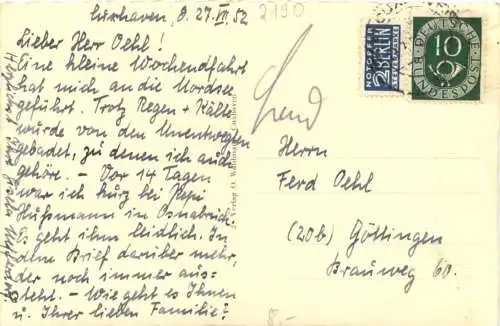 Cuxhaven, d. 27. VII. 52
2190
Lieber Herr Oehl!
Eine kleine Wochendfahrt
hat mich an die Nordsee
geführt. Trotz Regen + Kälte
wurde von den Unentwegten
gebadet, zu denen ich auch
gehöre. – Vor 14 Tagen
war ich kurz bei Pepi
Hußmann in Osnabrück.
Es geht ihm leidlich. In
dem Brief darüber mehr,
der noch immer aus-
steht. – Wie geht es Ihnen
u. Ihrer lieben Familie?
Herzlichst Ihre
Verlag O. Cuxhaven
NOTOPFER
2 BERLIN
STEUERMARKE
DEUTSCHE
10
BUNDESPOST
Herrn
Ferd Oehl
(20b) Göttingen
Brauweg 60.
8,-